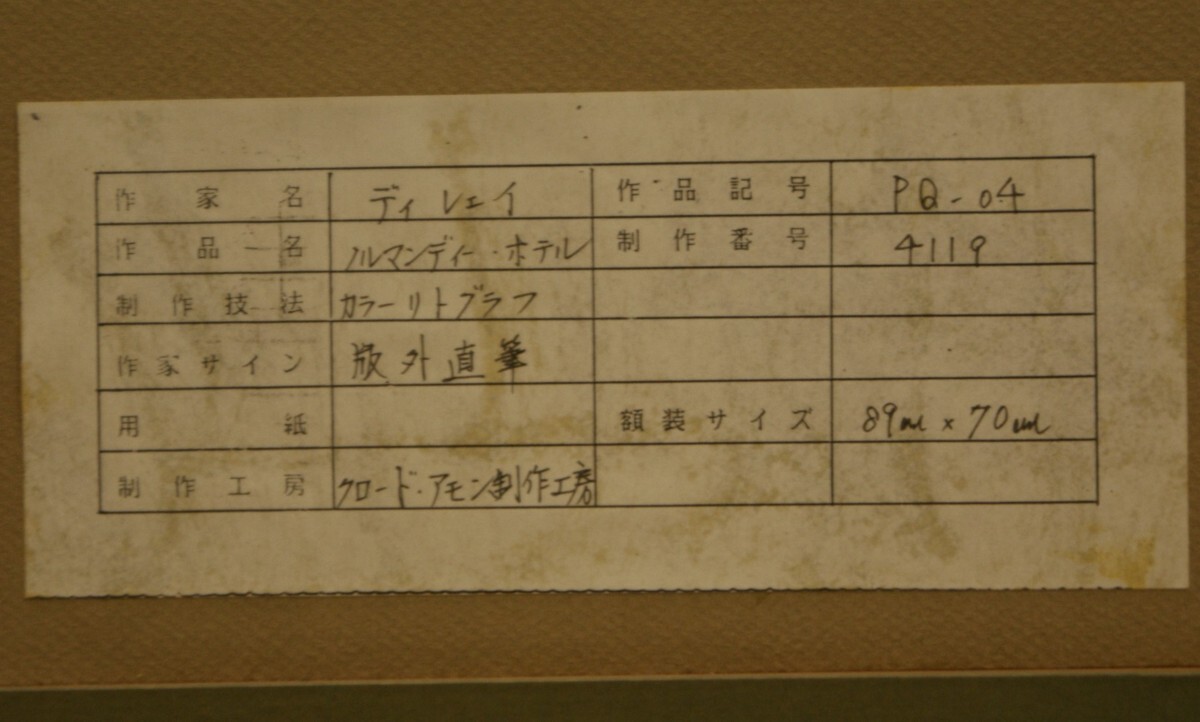 作家名 ディレェイ 作品記号 PQ-04
作品名 ノルマンディー・ホテル 制作番号 4119
制作技法 カラーリトグラフ
作家サイン 版外直筆
用紙 額装サイズ 89cm x 70cm
制作工房 クロード・アモン制作工房